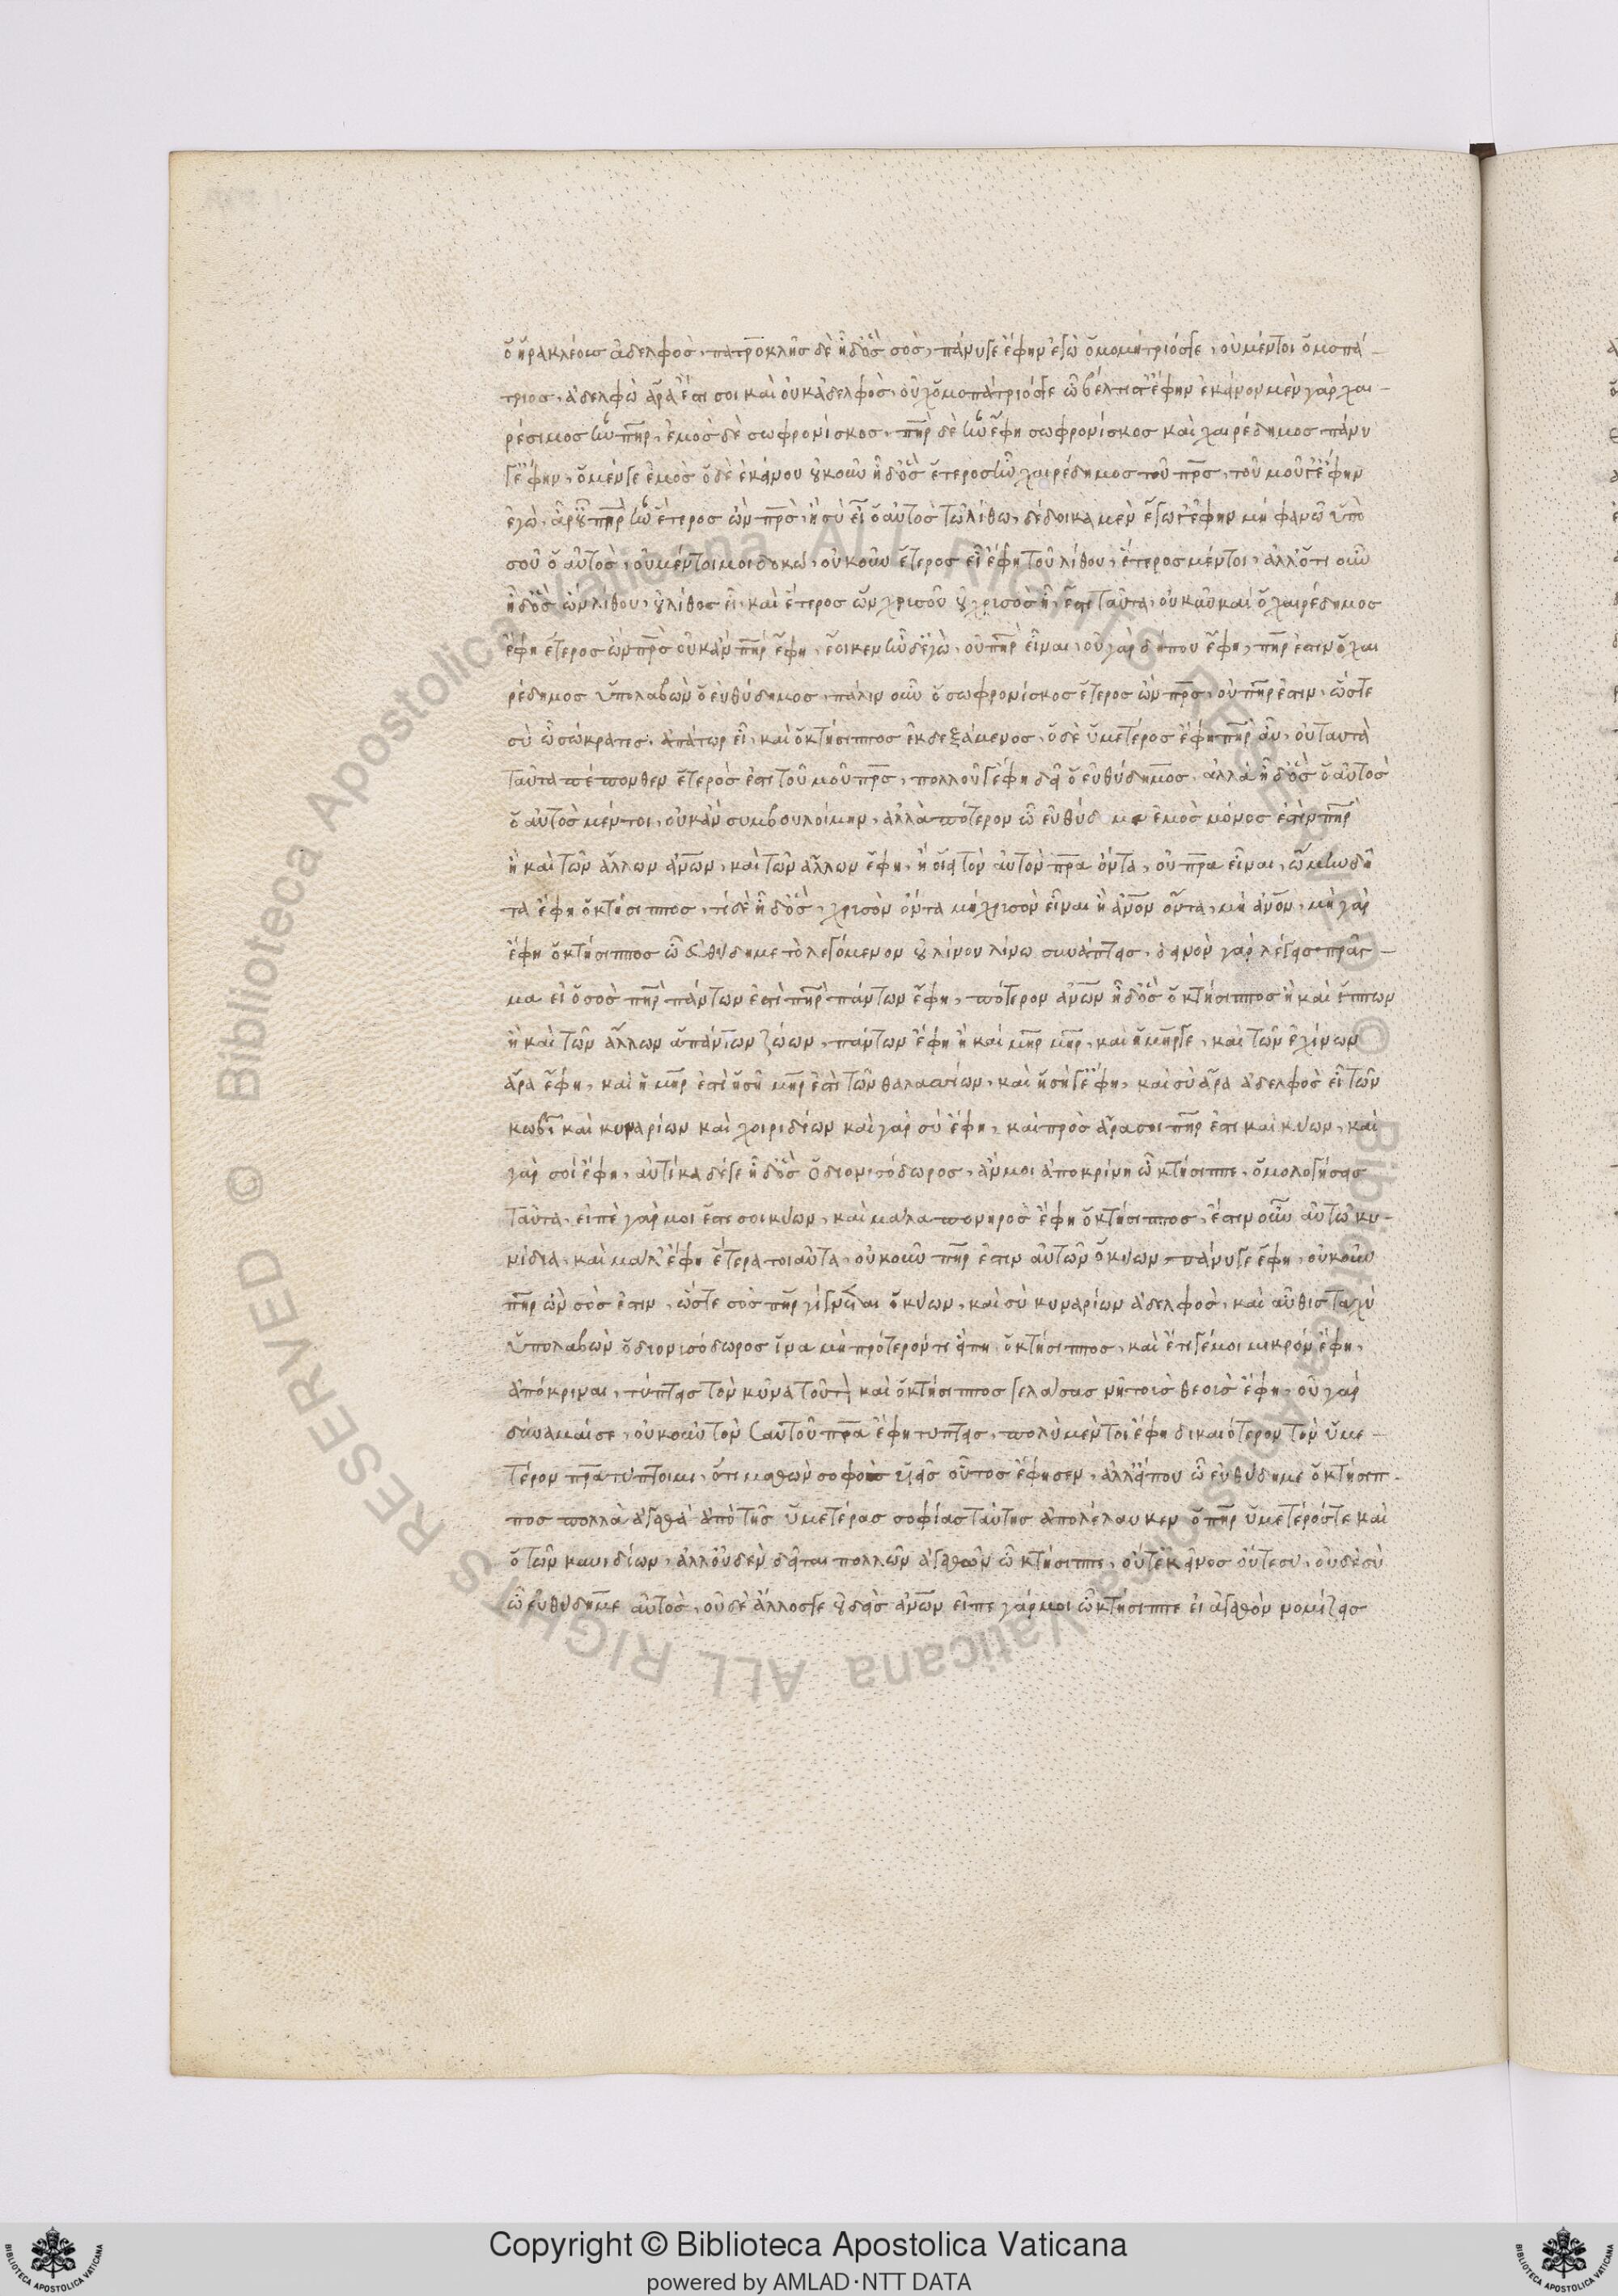 ὁ ἡρακλέους ἀδελφὸς, πατροκλῆς δὲ ἦ δ᾽ ὃς σὸς, πάνυ γε ἔφην ἐγὼ ὁμομήτριός γε, οὐ μέντοι ὁμοπά-
τριος, ἀδελφὼ ἄρα ἔστι σοι καὶ οὐκ ἀδελφὸς, οὐχ ὁμοπάτριός γε ὦ βέλτιστ᾽ ἔφην ἐκείνου μὲν γὰρ χαι-
ρέδιμος ἦν πηρ, ἐμὸς δὲ σωφρονίσκος, πηρ δὲ ἦν ἔφη σωφρονίσκος καὶ χαιρέδημος πάνυ
γ᾽ ἔφην, ὁ μέν γε ἐμὸς ὁ δὲ ἐκείνου οὐκοῦν ἦ δ᾽ ὃς ἕτερος ἦν χαιρέδημος τοῦ πρς, τοῦ μοῦ γ᾽ ἔφην
ἐγὼ, ἆρ᾽ οὖν πηρ ἦν ἕτερος ὢν πρς, ἢ σὺ εἶ ὁ αὐτὸς τῶ λίθω, δέδοικα μὲν ἔγωγ᾽ ἔφην μὴ φανῶ ὑπὸ
σοῦ ὁ αὐτὸς, οὐ μέντοι μοι δοκῶ, οὐκοῦν ἕτερος εἶ ἔφη τοῦ λίθου, ἕτερος μέντοι, ἀλλ᾽ ὅτι οὖν
ἦ δ᾽ ὃς ὢν λίθου, οὐ λίθος εἶ, καὶ ἕτερος ὢν χρυσοῦ οὐ χρυσὸς εἶ, ἔστι ταῦτα, οὐκοῦν καὶ ὁ χαιρέδημος
ἔφη ἕτερος ὢν πρς οὐκ ἂν πηρ ἔφη, ἔοικεν ἦν δ᾽ ἐγὼ, οὐ πηρ εἶναι, οὐ γὰρ δήπου ἔφη, πηρ ἐστιν ὁ χαι
ρέδημος ὑπολαβὼν ὁ εὐθύδημος, πάλιν οὖν ὁ σωφρονίσκος ἕτερος ὢν πρς, οὐ πηρ ἐστιν, ὥστε
σὺ ὦ σώκρατες, ἀπάτωρ εἶ, καὶ ὁ κτήσιππος ἐκδεξάμενος, ὁ δὲ ὑμέτερος ἔφη πηρ αὖ, οὐ ταυτὰ
ταῦτα πέπονθεν ἕτερός ἐστι τοῦ μοῦ πρς, πολλοῦ γ᾽ ἔφη δεῖ ὁ εὐθύδημος, ἀλλὰ ἦ δ᾽ ὃς ὁ αὐτὸς
ὁ αὐτὸς μέντοι, οὐκ ἂν συμβουλοίμην, ἀλλὰ πότερον ὦ εὐθύδημε ἐμὸς μόνος ἐστὶν πηρ
ἢ καὶ τῶν ἄλλων ἀνων, καὶ τῶν ἄλλων ἔφη, ἢ οἴει τὸν αὐτὸν πρα ὄντα, οὐ πρα εἶναι, ὤμην δῆ
τα ἔφη ὁ κτήσιππος, τί δὲ ἦ δ᾽ ὃς, χρυσὸν ὄντα μὴ χρυσὸν εἶναι ἢ ἀνον ὄντα, μὴ ἀνον, μὴ γὰρ
ἔφη ὁ κτήσιππος ὦ εὐθύδημε τὸ λεγόμενον οὐ λίνον λίνω συνάπτεις, δεινὸν γὰρ λέγεις πρᾶγ-
μα εἰ ὁ σὸς πηρ πάντων ἐστὶ πηρ πάντων ἔφη, πότερον ἀνων ἦ δ᾽ ὃς ὁ κτήσιππος ἢ καὶ ἵππων
ἢ καὶ τῶν ἄλλων ἁπάντων ζώων, πάντων ἔφη ἢ καὶ μηρ μηρ, καὶ ἡ μηρ γε, καὶ τῶν ἐχίνων
ἄρα ἔφη, καὶ ἡ μηρ ἐστὶ ἡ σὴ μηρ ἐστὶ τῶν θαλασσίων, καὶ ἡ σή γ᾽ ἔφη, καὶ σὺ ἄρα ἀδελφὸς εἶ τῶν
κωβι καὶ κυναρίων καὶ χοιριδίων καὶ γὰρ σύ ἔφη, καὶ πρὸς ἄρα σοι πηρ ἐστι καὶ κύων, καὶ
γὰρ σοί ἔφη, αὐτίκα δέ γε ἦ δ᾽ ὃς ὁ διονυσόδωρος, ἄν μοι ἀποκρίνη ὦ κτήσιππε, ὁμολογήσεις
ταῦτα, εἰπὲ γάρ μοι ἔστι σοι κύων, καὶ μάλα πονηρὸς ἔφη ὁ κτήσιππος, ἔστιν οὖν αὐτῶ κυ-
νίδια, καὶ μάλ᾽ ἔφη ἕτερα τοιαῦτα, οὐκοῦν πηρ ἐστιν αὐτῶν ὁ κύων, πάνυ γε ἔφη, οὐκοῦν
πηρ ὢν σός ἐστιν, ὥστε σὸς πηρ γίγνεται ὁ κύων, καὶ σὺ κυναρίων ἀδελφὸς, καὶ αὖθις ταχὺ
ὑπολαβὼν ὁ διονυσόδωρος ἵνα μὴ πρότερόν τι εἴπη ὁ κτήσιππος, καὶ ἔτι γέ μοι μικρόν ἔφη,
ἀπόκριναι, τύπτεις τὸν κύνα τοῦτον καὶ ὁ κτήσιππος γελάσας νὴ τοὺς θεοὺς ἔφη, οὐ γὰρ
δύναμαί σε, οὐκοῦν τὸν σαυτοῦ πρα ἔφη τύπτεις, πολὺ μέντοι ἔφη δικαιότερον τὸν ὑμέ-
τερον πρα τύπτοιμι, ὅτι μαθὼν σοφοὺς υἱεῖς οὕτως ἔφησεν, ἀλλ᾽ ἦ που ὦ εὐθύδημε ὁ κτήσιπ-
πος πολλὰ ἀγαθὰ ἀπὸ τῆς ὑμετέρας σοφίας ταύτης ἀπολέλαυκεν ὁ πηρ ὑμέτερός τε καὶ
ὁ τῶν κυνιδίων, ἀλλ᾽ οὐδὲν δεῖται πολλῶν ἀγαθῶν ὦ κτήσιππε, οὔτ᾽ ἐκεῖνος οὔτε σύ, οὐδὲ σὺ
ὦ εὐθύδημε αὐτὸς, οὐδὲ ἄλλος γε οὐδεὶς ἀνων εἰπὲ γάρ μοι ὦ κτήσιππε εἰ ἀγαθὸν νομίζεις
© Biblioteca Apostolica Vaticana ALL RIGHTS RESERVED © Biblioteca Apostolica Vaticana ALL RIGHTS RESERVED
Copyright © Biblioteca Apostolica Vaticana
powered by AMLAD·NTT DATA
BIBLIOTECA APOSTOLICA VATICANA
BIBLIOTECA APOSTOLICA VATICANA